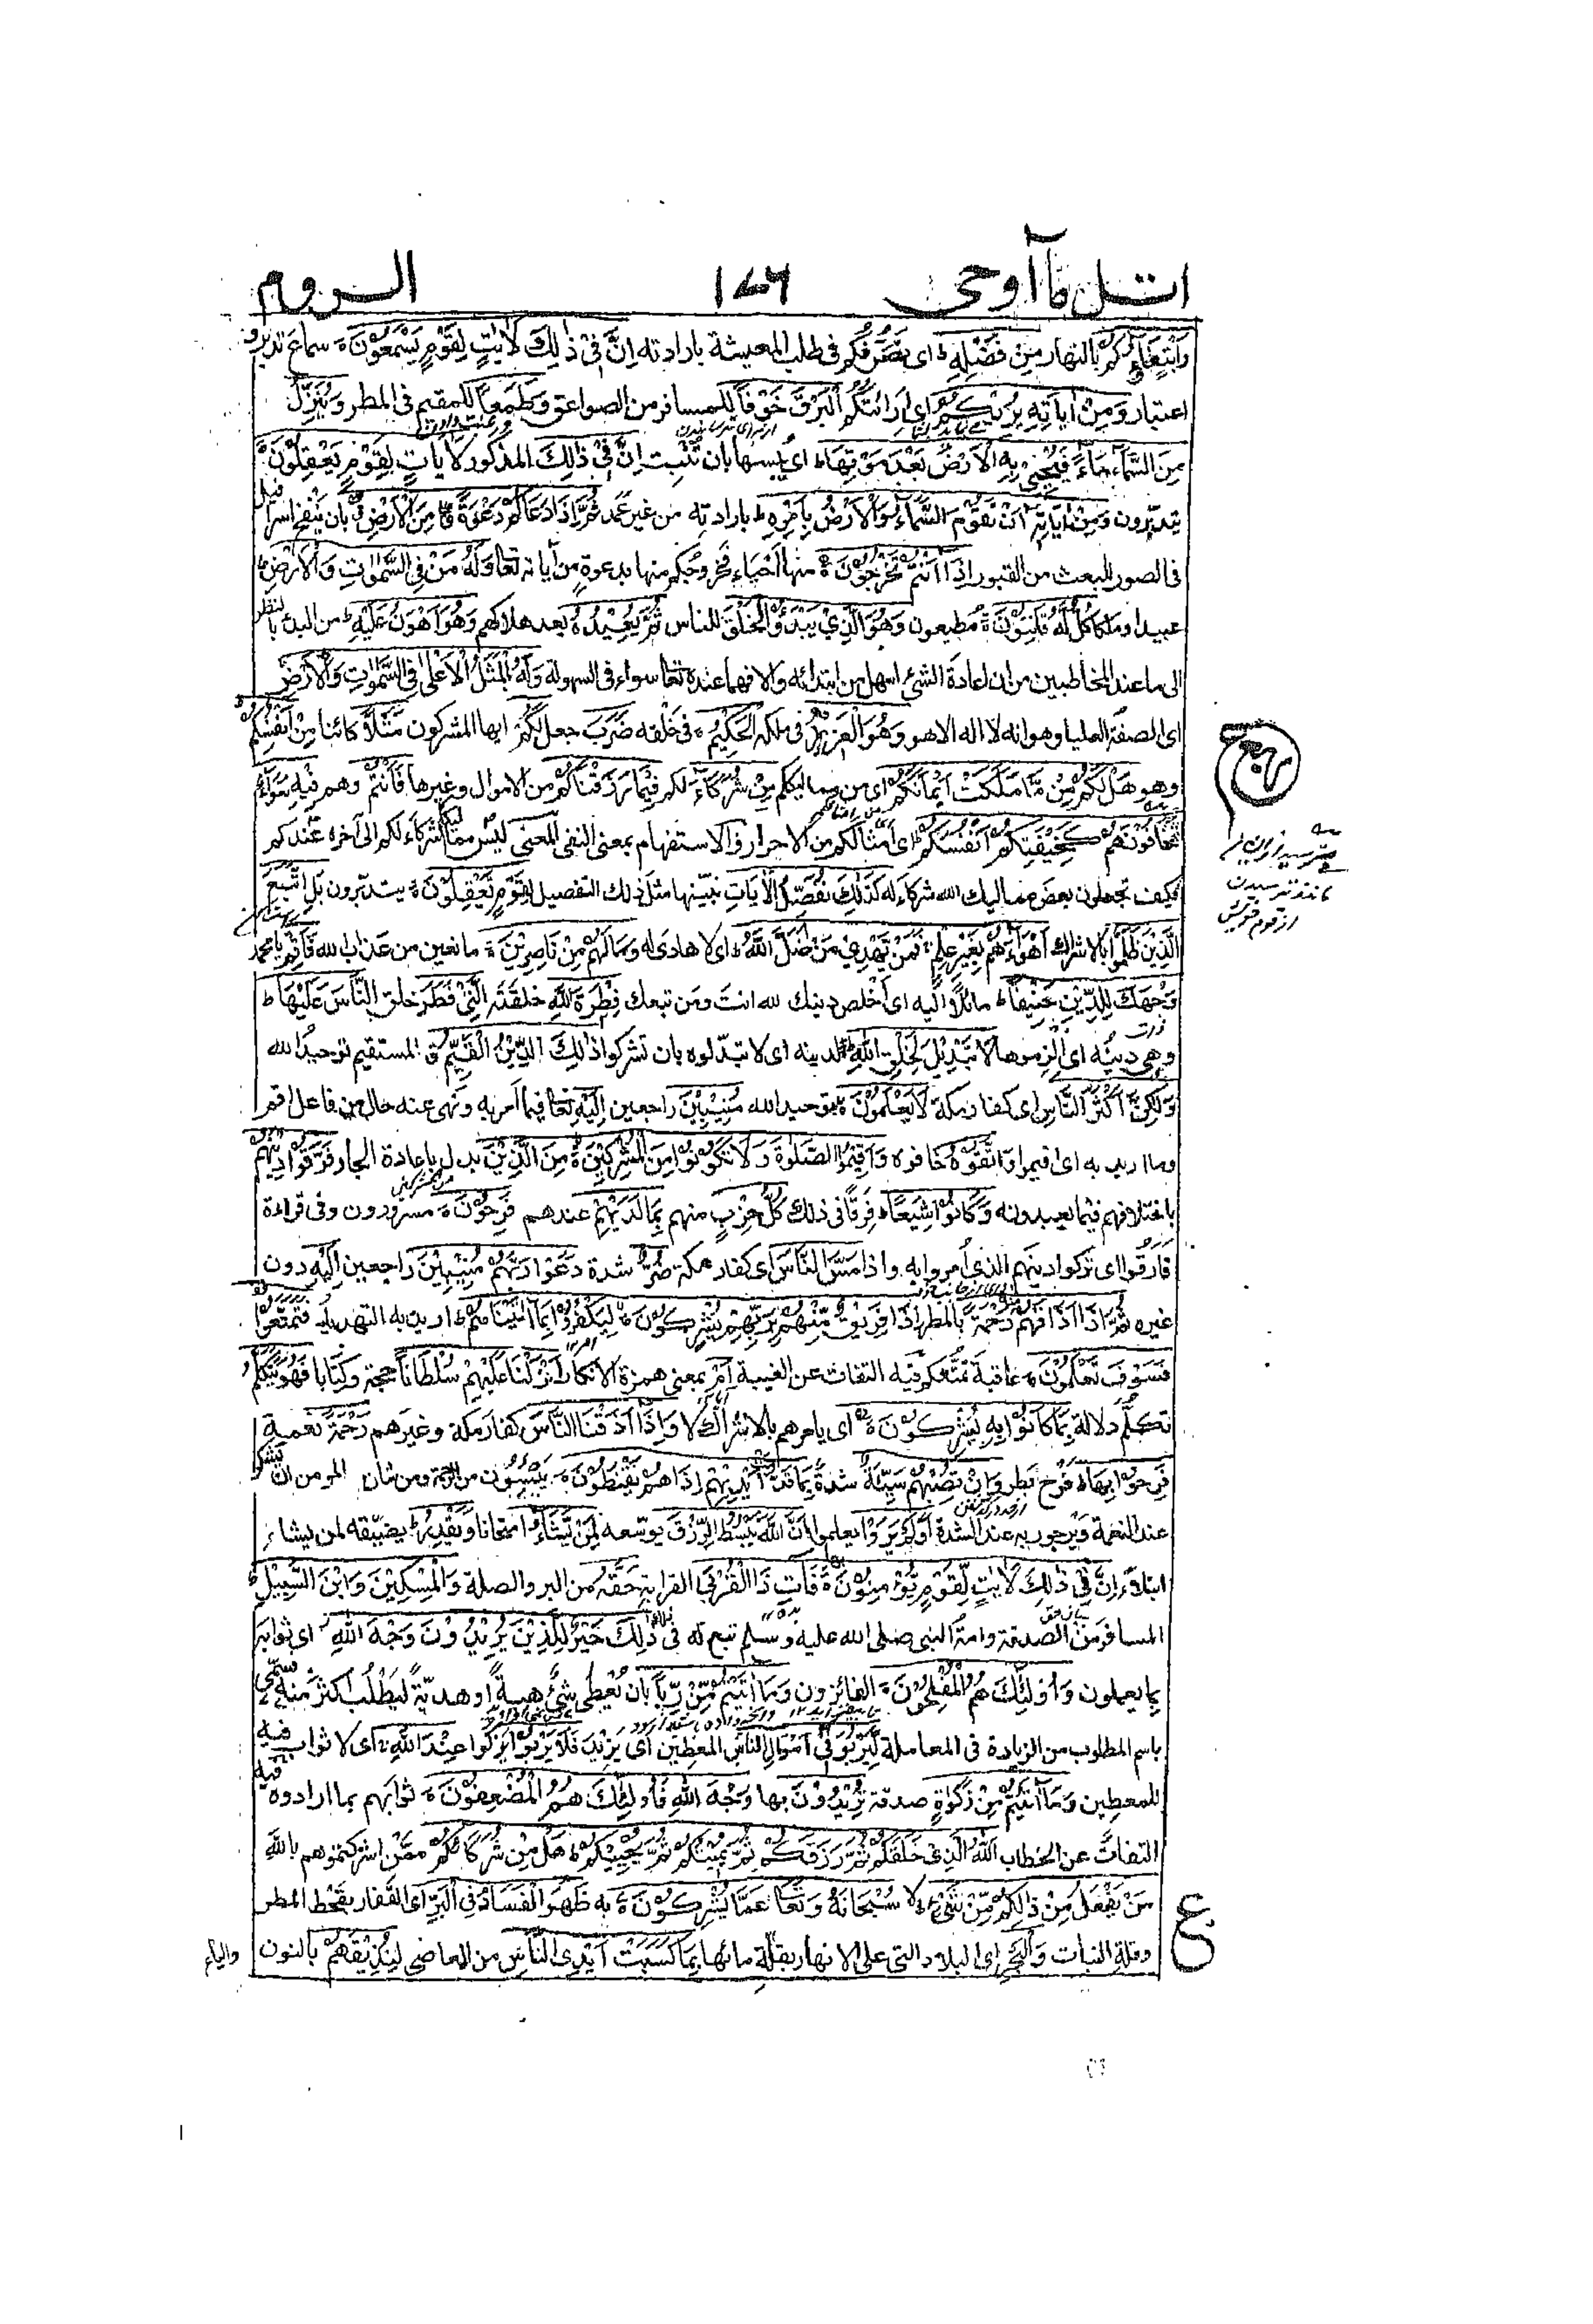 اتل مآ اوحى ١٤٦ الروم
وَابْتِغَاؤُكُمْ بالنهار مِنْ فَضْلِهٖ ط اى تصرّفكم فى طلب المعيشة بارادته اِنَّ فِىْ ذٰلِكَ لَاٰيٰتٍ لِقَوْمٍ يَسْمَعُوْنَ ۃ سماع تدبر و
اعتبار وَمِنْ اٰيَاتِهٖ يُرِيْكُمُ اى اراءتكم الْبَرْقَ خَوْفًا للمسافر من الصواعق وَّطَمَعًا للمقيم فى المطر وَيُنَزِّلُ
مِنَ السَّمَآءِ مَآءً فَيُحْيِىْ بِهِ الْاَرْضَ بَعْدَ مَوْتِهَا ط اى يُبسها بان تُنْبِت اِنَّ فِىْ ذٰلِكَ المذكور لَاٰيَاتٍ لِقَوْمٍ يَعْقِلُوْنَ ۃ
يتدبّرون وَمِنْ اٰيَاتِهٖ اَنْ تَقُوْمَ السَّمَآءُ وَالْاَرْضُ بِاَمْرِهٖ ط بارادتِه من غير عَمد ثُمَّ اِذَا دَعَاكُمْ دَعْوَةً مِّنَ الْاَرْضِ ق بان يَنْفخ اسرافيل
فى الصور للبعث من القبور اِذَا اَنْتُمْ تَخْرُجُوْنَ ۃ منها اَحْيَاء فخروجكم منها بدعوةٍ من اٰياته تعالى وَلَهٗ مَنْ فِى السَّمٰوٰتِ وَالْاَرْضِ ط
عبيدا وملكا كُلٌّ لَهٗ قٰنِتُوْنَ ۃ مطيعون وَهُوَ الَّذِىْ يَبْدَؤُا الْخَلْقَ للناس ثُمَّ يُعِيْدُهٗ بعد هلاكهم وَهُوَ اَهْوَنُ عَلَيْهِ ط من البدء بالنظر
الى ما عند المخاطبين من ان اعادة الشئ اسهل من ابتدائه والا فهما عنده تعالى سواء فى السهولة وَلَهُ الْمَثَلُ الْاَعْلٰى فِى السَّمٰوٰتِ وَالْاَرْضِ
اى الصفة العليا وهو انه لا اله الا هو وَهُوَ الْعَزِيْزُ فى ملكه الْحَكِيْمُ ۃ فى خَلْقه ضَرَبَ جعل لَكُمْ ايها المشركون مَثَلًا كائنا مِنْ اَنْفُسِكُمْ ط
وهو هَلْ لَكُمْ مِنْ مَّا مَلَكَتْ اَيْمَانُكُمْ اى من مماليككم مِنْ شُرَكَآءَ لكم فِيْمَا رَزَقْنَاكُمْ من الاموال وغيرها فَاَنْتُمْ وهم فِيْهِ سَوَآءٌ
تَخَافُوْنَهُمْ كَخِيْفَتِكُمْ اَنْفُسَكُمْ ط اى امثالكم من الاحرار والاستفهام بمعنى النفى المعنى ليس مماليككم شركاء لكم الى آخره عندكم
فكيف تجعلون بعض مماليك الله شركاءَ له كَذٰلِكَ نُفَصِّلُ الْاٰيَاتِ نبيّنها مثل ذلك التفصيل لِقَوْمٍ يَعْقِلُوْنَ ۃ يتدبّرون بَلِ اتَّبَعَ
الَّذِيْنَ ظَلَمُوْا بالاشراك اَهْوَآءَهُمْ بِغَيْرِ عِلْمٍ ۚ فَمَنْ يَّهْدِىْ مَنْ اَضَلَّ اللّٰهُ ط اى لا هادى له وَمَا لَهُمْ مِنْ نَاصِرِيْنَ ۃ مانعين من عذاب الله فَاَقِمْ يا محمد
وَجْهَكَ لِلدِّيْنِ حَنِيْفًا ط مائلًا اليه اى اخلص دينك لله انت ومن تبعك فِطْرَةَ اللّٰهِ خلقته الَّتِىْ فَطَرَ خلق النَّاسَ عَلَيْهَا ط
وهى دينُه اى الزموها لَا تَبْدِيْلَ لِخَلْقِ اللّٰهِ ط لدينه اى لا تبدّلوه بان تشركوا ذٰلِكَ الدِّيْنُ الْقَيِّمُ ق المستقيم توحيدُ الله
وَلٰكِنَّ اَكْثَرَ النَّاسِ اى كفار مكة لَا يَعْلَمُوْنَ ۃ بتوحيد الله مُنِيْبِيْنَ راجعين اِلَيْهِ تعالى فيما امر به ونهى عنه حال من فاعل اقم
وما اريد به اى اقيموا وَاتَّقُوْهُ خافوه وَاَقِيْمُوا الصَّلٰوةَ وَلَا تَكُوْنُوْا مِنَ الْمُشْرِكِيْنَ ۃ مِنَ الَّذِيْنَ بدل باعادة الجار فَرَّقُوْا دِيْنَهُمْ
باختلافهم فيما يعبدونه وَكَانُوْا شِيَعًا ط فِرَقًا فى ذلك كُلُّ حِزْبٍ منهم بِمَا لَدَيْهِمْ عندهم فَرِحُوْنَ ۃ مسرورون وفى قراءة
فارقوا اى تركوا دينهم الذى أُمروا به وَاِذَا مَسَّ النَّاسَ اى كفار مكة ضُرٌّ شدة دَعَوْا رَبَّهُمْ مُنِيْبِيْنَ راجعين اِلَيْهِ دون
غيره ثُمَّ اِذَا اَذَاقَهُمْ مِنْهُ رَحْمَةً بالمطر اِذَا فَرِيْقٌ مِّنْهُمْ بِرَبِّهِمْ يُشْرِكُوْنَ ۃ لِيَكْفُرُوْا بِمَا اٰتَيْنَاهُمْ ط اريد به التهديد فَتَمَتَّعُوْا
فَسَوْفَ تَعْلَمُوْنَ ۃ عاقبة تمتّعكم فيه التفات عن الغيبة اَمْ بمعنى همزة الانكار اَنْزَلْنَا عَلَيْهِمْ سُلْطَانًا حجة وكتابا فَهُوَ يَتَكَلَّمُ
تكلّم دلالة بِمَا كَانُوْا بِهٖ يُشْرِكُوْنَ ۃ اى يامرهم بالاشراك لا وَاِذَا اَذَقْنَا النَّاسَ كفار مكة وغيرهم رَحْمَةً نعمة
فَرِحُوْا بِهَا ط فرح بطر وَاِنْ تُصِبْهُمْ سَيِّئَةٌ شدة بِمَا قَدَّمَتْ اَيْدِيْهِمْ اِذَا هُمْ يَقْنَطُوْنَ ۃ يَيْئسون من الرحمة ومن شان المومن ان يشكر
عند النعمة ويرجو ربه عند الشدة اَوَلَمْ يَرَوْا يعلموا اَنَّ اللّٰهَ يَبْسُطُ الرِّزْقَ يوسّعه لِمَنْ يَّشَآءُ امتحانا وَيَقْدِرُ ط يضيّقه لمن يشاء
ابتلاء اِنَّ فِىْ ذٰلِكَ لَاٰيٰتٍ لِّقَوْمٍ يُّؤْمِنُوْنَ ۃ فَاٰتِ ذَا الْقُرْبٰى القرابة حَقَّهٗ من البر والصلة وَالْمِسْكِيْنَ وَابْنَ السَّبِيْلِ ط
المسافر من الصدقة وامة النبى صلى الله عليه وسلم تبع له فى ذٰلِكَ خَيْرٌ لِلَّذِيْنَ يُرِيْدُوْنَ وَجْهَ اللّٰهِ اى ثوابه
بما يعملون وَاُولٰٓئِكَ هُمُ الْمُفْلِحُوْنَ ۃ الفائزون وَمَا اٰتَيْتُمْ مِّنْ رِّبًا بان يُعْطى شئ هبة او هدية ليطلب اكثر منه سمّى
باسم المطلوب من الزيادة فى المعاملة لِّيَرْبُوَ فِىْ اَمْوَالِ النَّاسِ المعطين اى يزيد فَلَا يَرْبُوْا يزكوا عِنْدَ اللّٰهِ ۚ اى لا ثواب فيه
للمعطين وَمَا اٰتَيْتُمْ مِّنْ زَكٰوةٍ صدقة تُرِيْدُوْنَ بها وَجْهَ اللّٰهِ فَاُولٰٓئِكَ هُمُ الْمُضْعِفُوْنَ ۃ ثوابهم بما ارادوه فيه
التفات عن الخطاب اَللّٰهُ الَّذِىْ خَلَقَكُمْ ثُمَّ رَزَقَكُمْ ثُمَّ يُمِيْتُكُمْ ثُمَّ يُحْيِيْكُمْ ط هَلْ مِنْ شُرَكَائِكُمْ ممن اشركتموهم بالله
مَنْ يَفْعَلُ مِنْ ذٰلِكُمْ مِّنْ شَىْءٍ ط لا سُبْحَانَهٗ وَتَعَالٰى عَمَّا يُشْرِكُوْنَ ۃ به ظَهَرَ الْفَسَادُ فِى الْبَرِّ اى القفار بقحط المطر
وقلة النبات وَالْبَحْرِ اى البلاد التى على الانهار بقلّة مائها بِمَا كَسَبَتْ اَيْدِى النَّاسِ من المعاصى لِيُذِيْقَهُمْ بالنون
والياء
ع
مانند ترسيدن
از قوم خويش